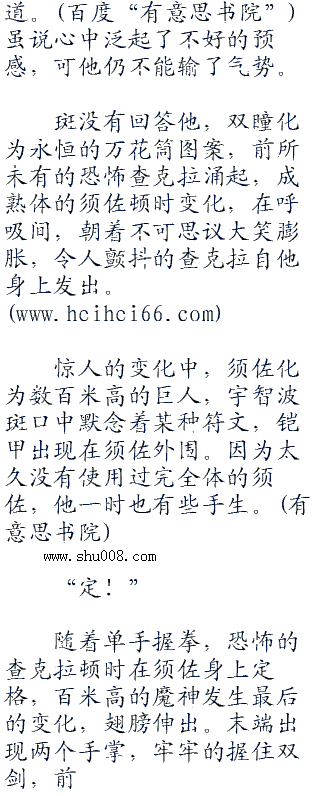 道。(百度“有意思书院”)
虽说心中泛起了不好的预
感，可他仍不能输了气势。
斑没有回答他，双瞳化
为永恒的万花筒图案，前所
未有的恐怖查克拉涌起，成
熟体的须佐顿时变化，在呼
吸间，朝着不可思议大笑膨
胀，令人颤抖的查克拉自他
身上发出。
(www.hcihci66.com)
惊人的变化中，须佐化
为数百米高的巨人，宇智波
斑口中默念着某种符文，铠
甲出现在须佐外围。因为太
久没有使用过完全体的须
佐，他一时也有些手生。(有
意思书院)
www.shu008.com
“定！”
随着单手握拳，恐怖的
查克拉顿时在须佐身上定
格，百米高的魔神发生最后
的变化，翅膀伸出。末端出
现两个手掌，牢牢的握住双
剑，前